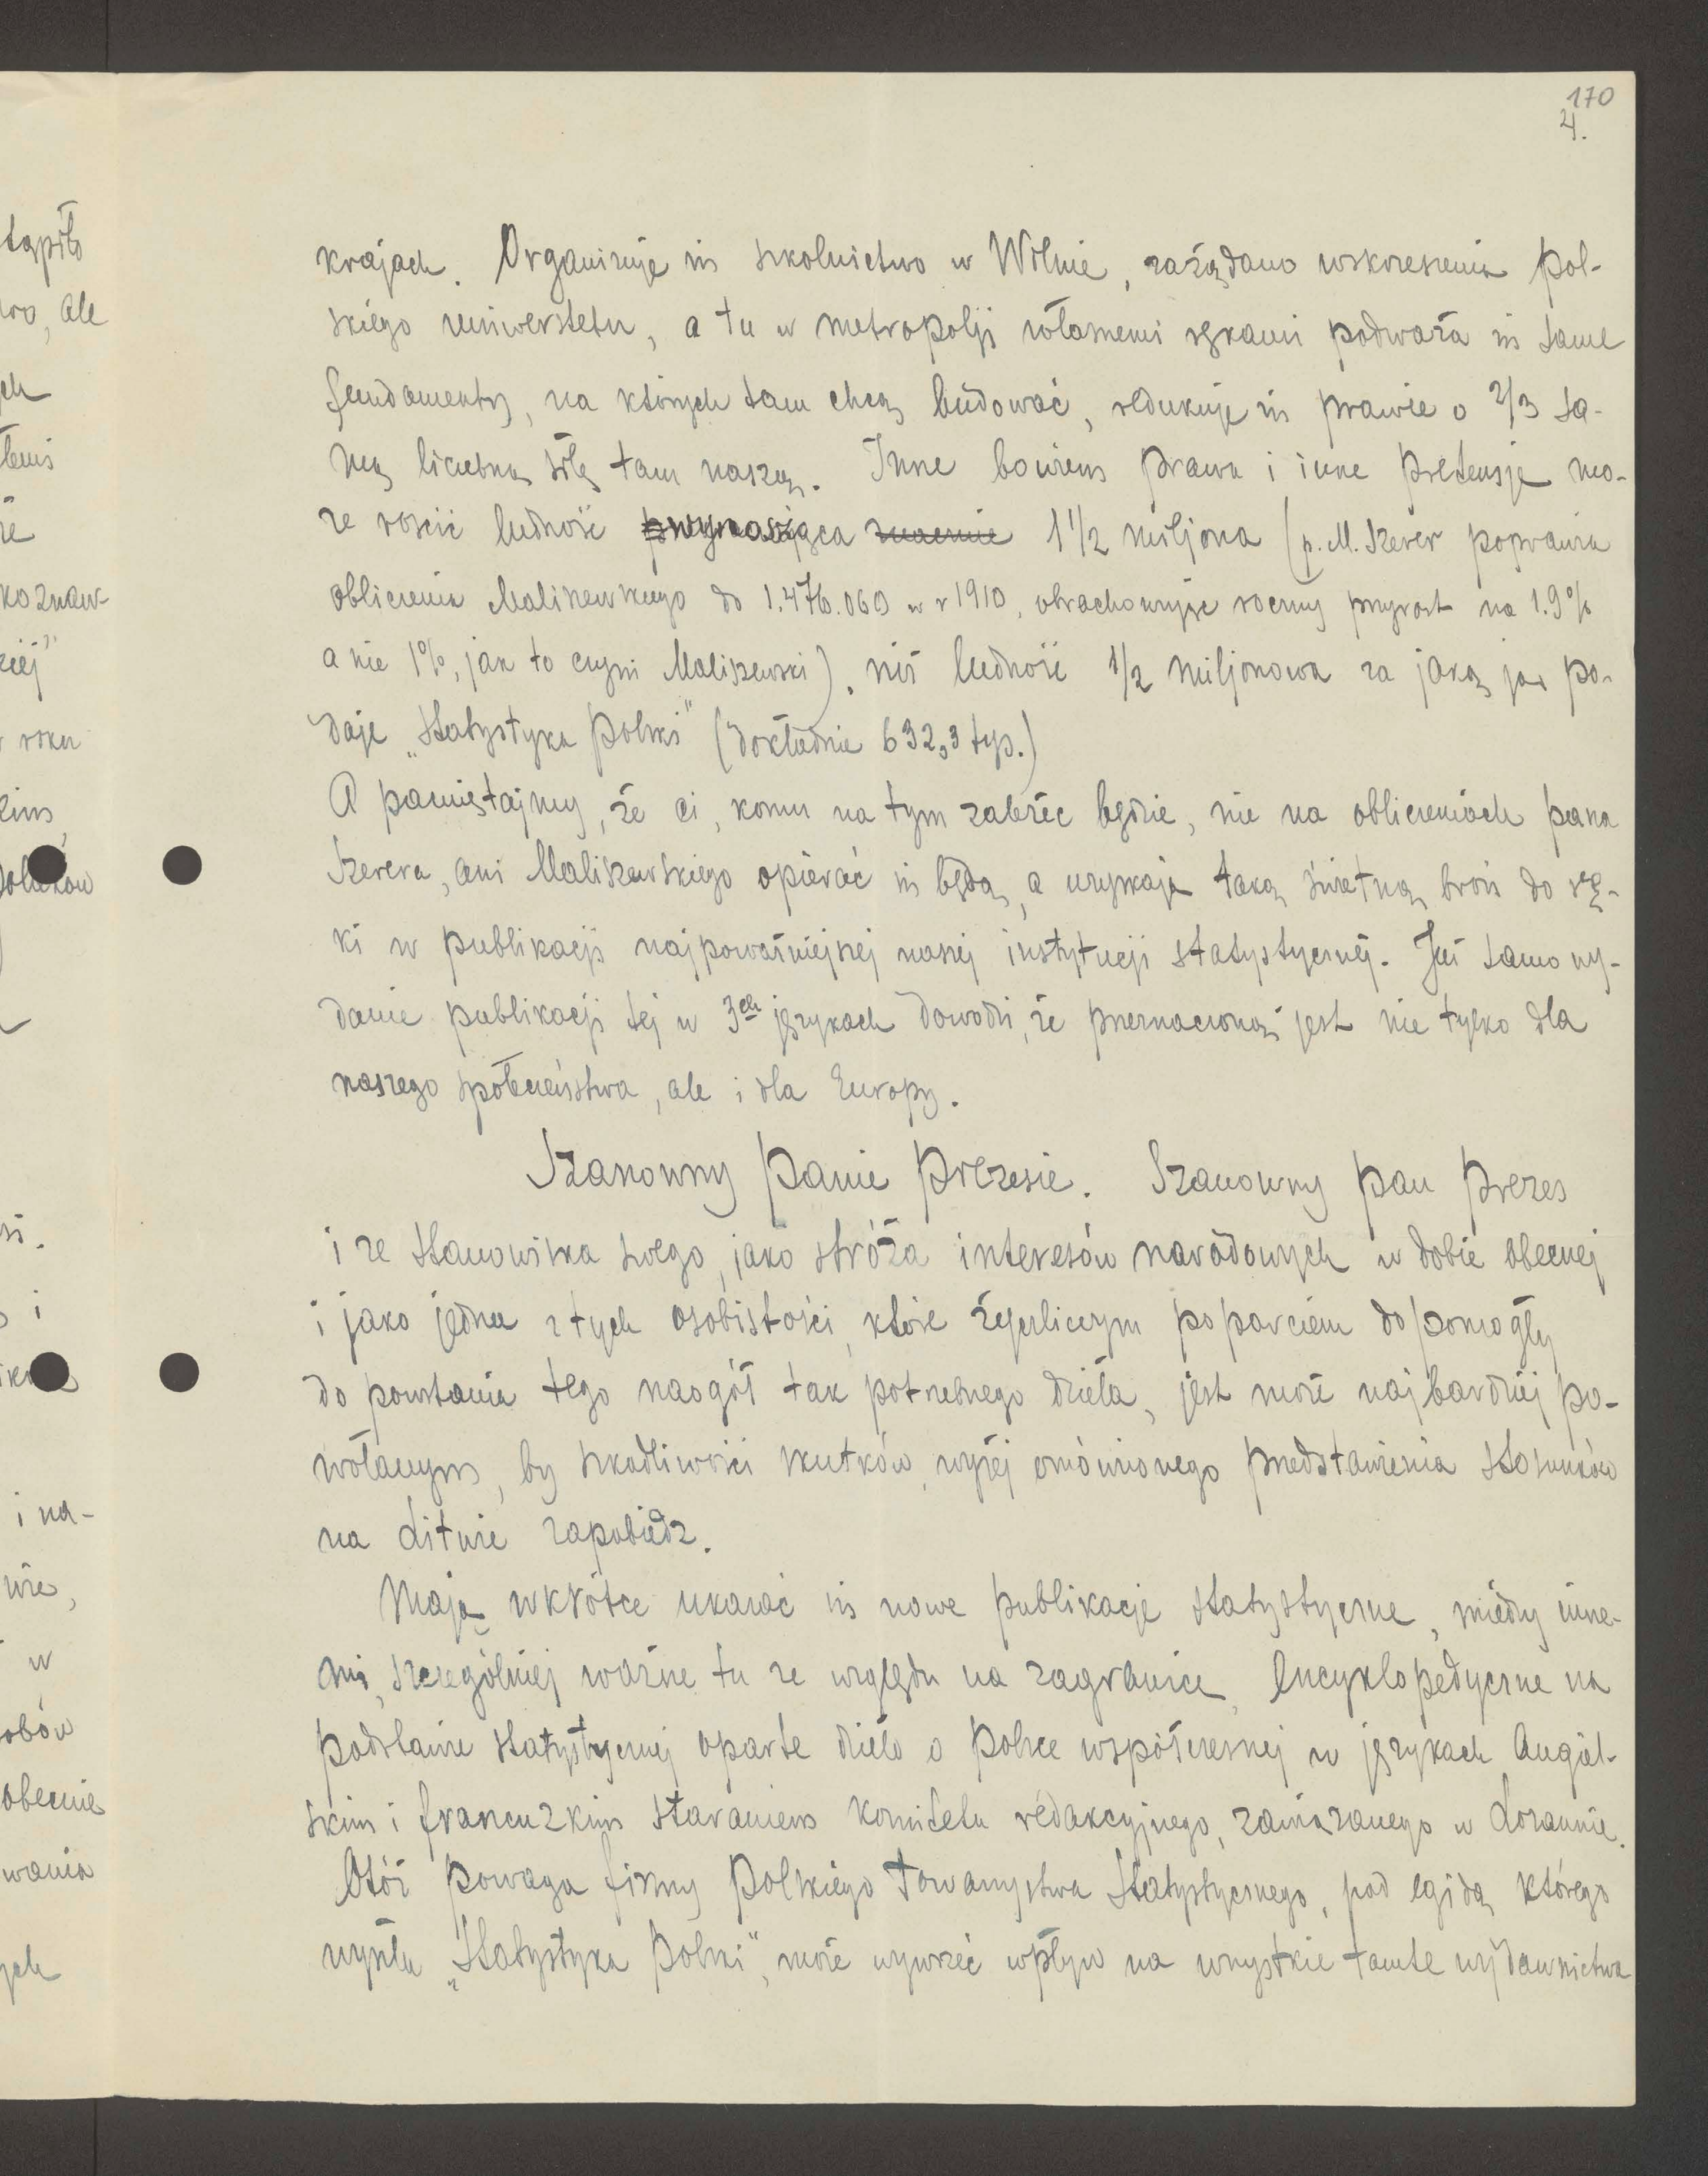 170
4.
krajach. Organizuje się szkolnictwo w Wilnie, zażądano wskrzeszenia pol-
skiego uniwerstetu, a tu w metropolji własnemi rękami podważa się same
fundamenty, na których tam chcą budować, redukuje się prawie o 2/3 sa-
mą liczebną siłę tam naszą. Inne bowiem prawa i inne pretensje mo-
że rościć ludność wynosząca znacznie 1 1/2 miljona (p. M. Szerer poprawia
obliczenia Maliszewskiego do 1.476.060 w r 1910, obrachowując roczny przyrost na 1.9%
a nie 1%, jak to czyni Maliszewski), niż ludność 1/2 miljonowa za jaką ją po-
daje „Statystyka Polski" (dokładnie 632,3 tys.)
A pamiętajmy, że ci, komu na tym zależeć będzie, nie na obliczeniach pana
Szerera, ani Maliszewskiego opierać się będą, a uzyskają taką świetną broń do rę-
ki w publikacji najpoważniejszej naszej instytucji statystycznej. Już samo wy-
danie publikacji tej w 3ch językach dowodzi, że przeznaczoną jest nie tylko dla
naszego społeczeństwa, ale i dla Europy.
Szanowny Panie Prezesie. Szanowny pan Prezes
i ze stanowiska swego, jako stróża interesów narodowych w dobie obecnej
i jako jedna z tych osobistości, które życzliwym poparciem dopomogły
do powstania tego naogół tak potrzebnego dzieła, jest może najbardziej po-
wołanym, by szkodliwości skutków, wyżej omówionego przedstawienia stosunków
na Litwie zapobiedz.
Mają wkrótce ukazać się nowe publikacje statystyczne, między inne-
mi, szczególniej ważne tu ze względu na zagranicę, encyklopedyczne na
podstawie statystycznej oparte dzieło o Polsce współczesnej w językach Angiel-
skim i francuzkim staraniem Komitetu redakcyjnego, zawiązanego w Lozannie.
Otóż powaga firmy Polskiego Towarzystwa Statystycznego, pod egidą którego
wyszła „Statystyka Polski", może wywrzeć wpływ na wszystkie tamte wydawnictwa